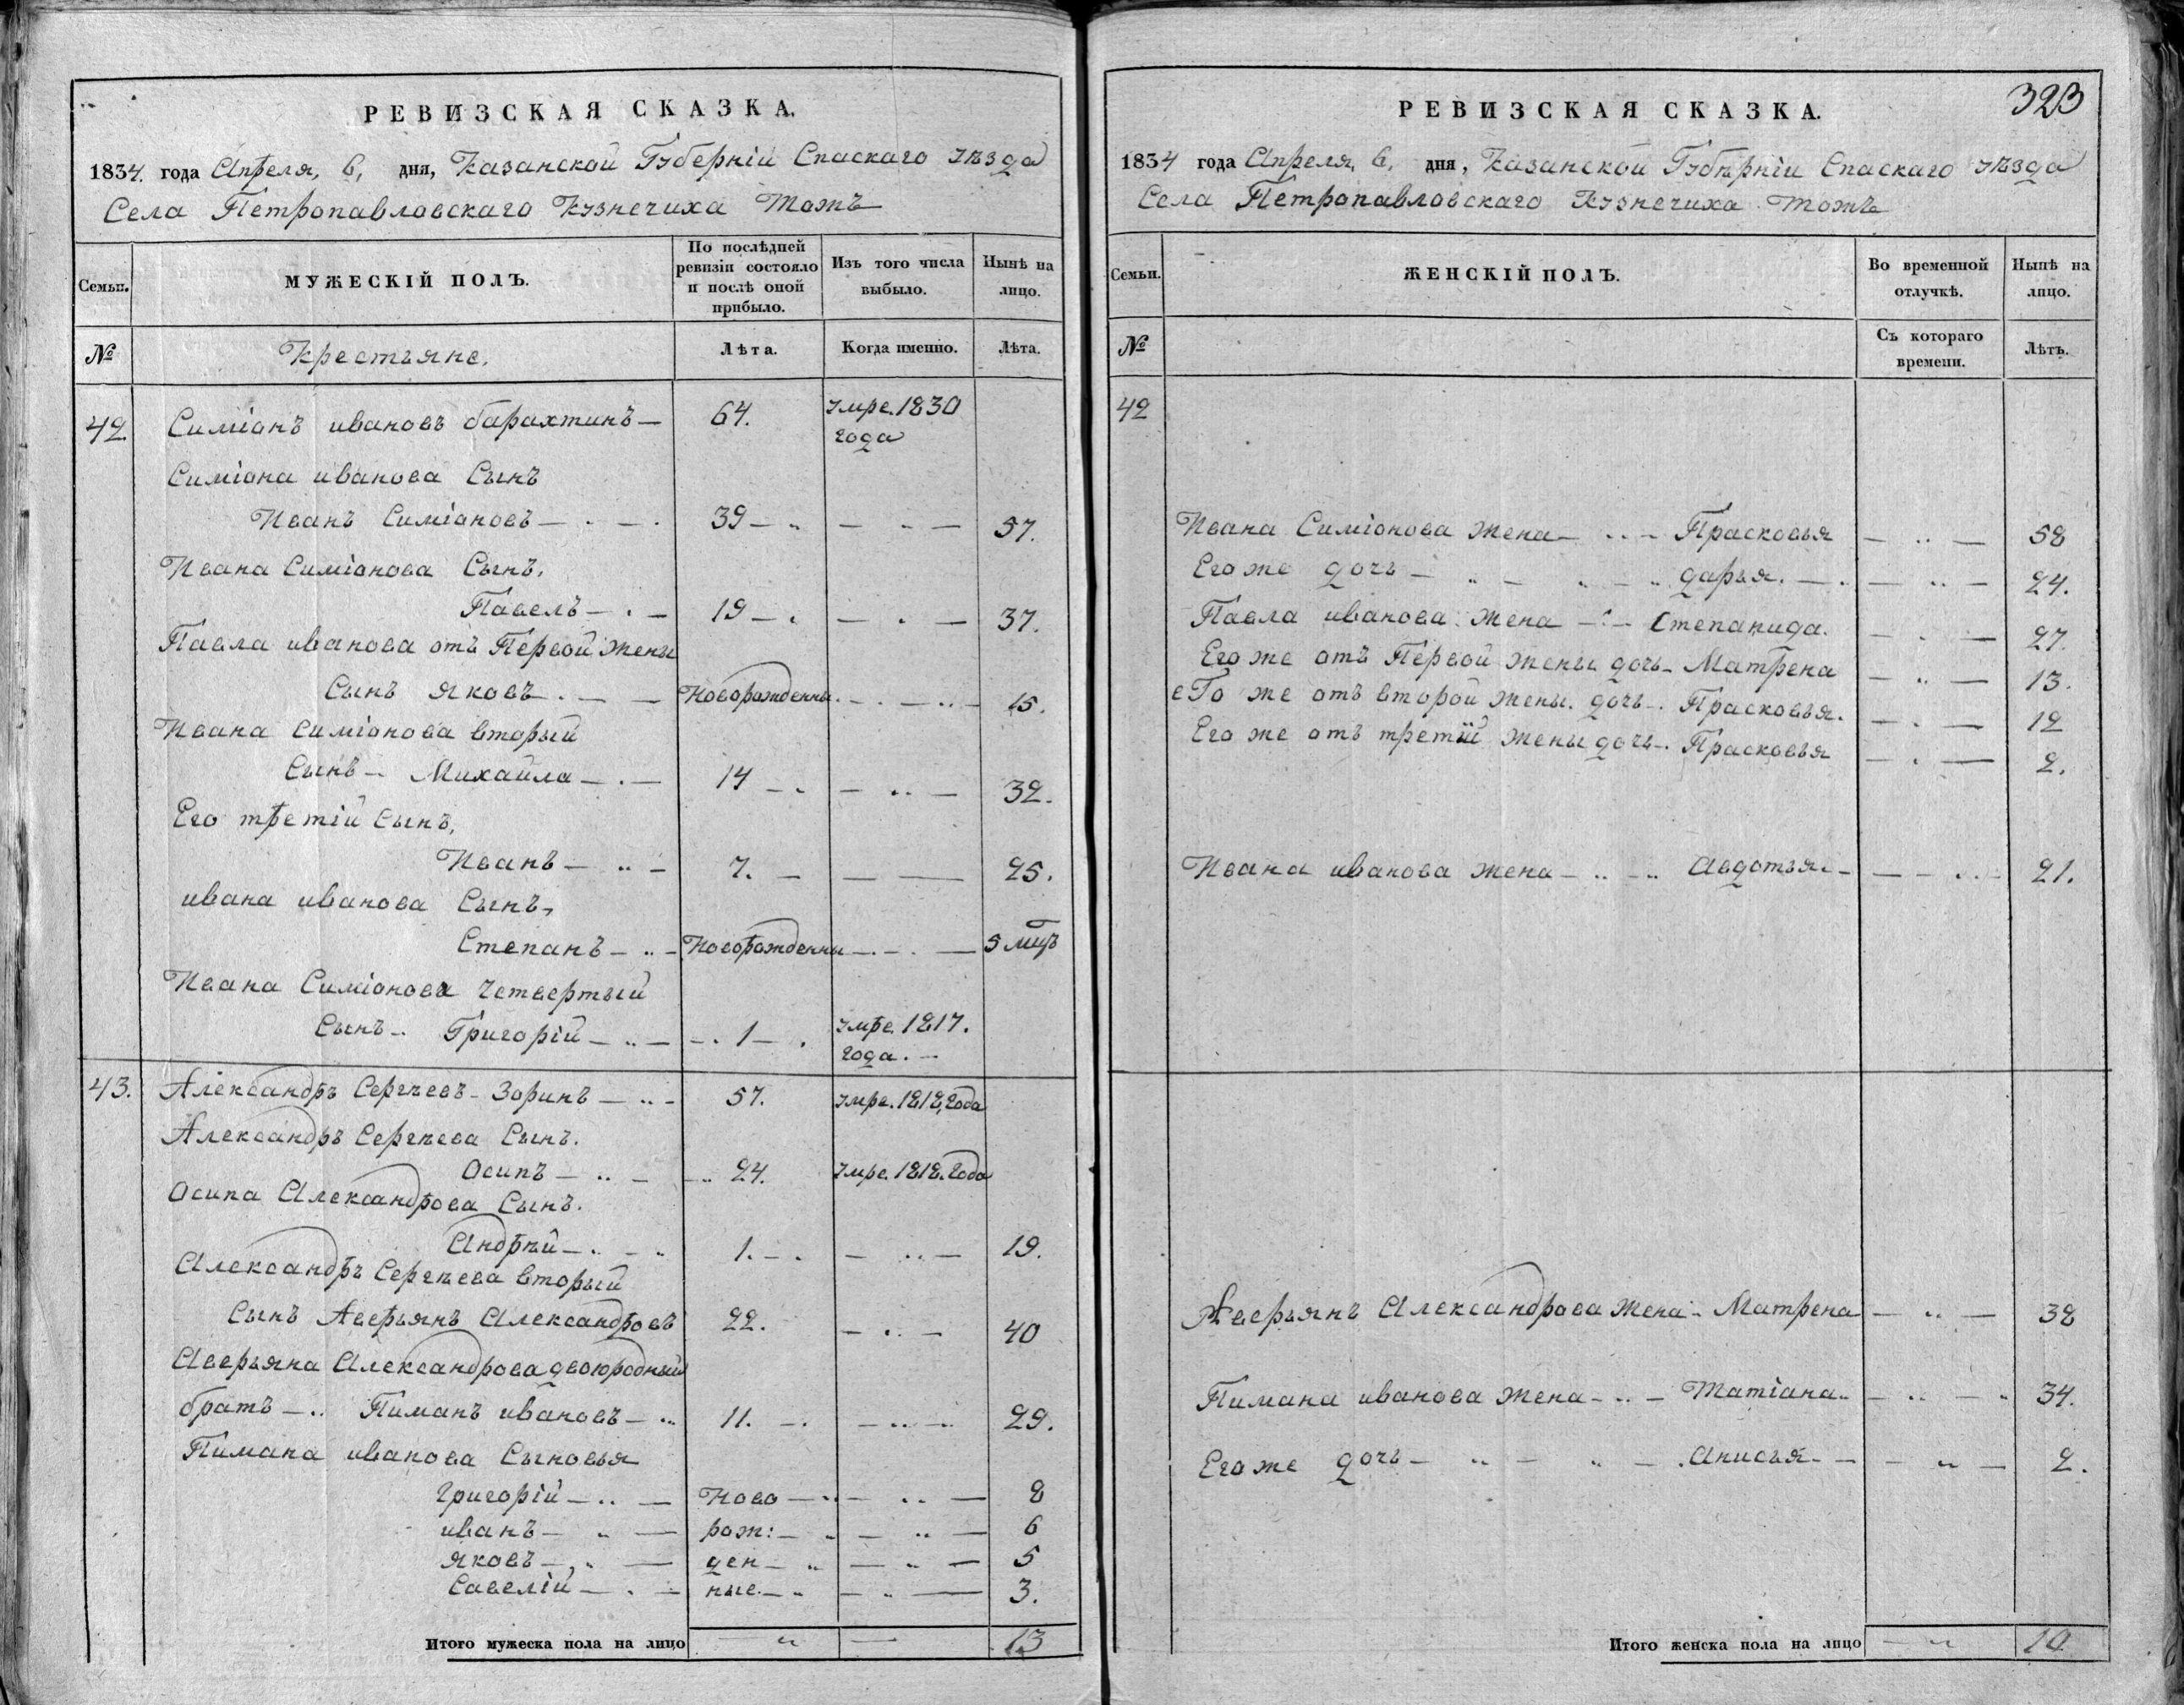 РЕВИЗСКАЯ СКАЗКА.
1834. года Апреля, 6, дня, Казанской Губерніи Спаскаго уѣзда
Села Петропавловскаго Кузнечиха тожъ
Семьи.
МУЖЕСКІЙ ПОЛЪ.
По послѣдней ревизіи состояло и послѣ оной прибыло.
Изъ того числа выбыло.
Нынѣ на лицо.
№
Крестьяне.
Лѣта.
Когда именно.
Лѣта.
42. Симіонъ ивановъ барахтинъ — 64. умре. 1830
года
Симіона иванова Сынъ
Иванъ Симіоновъ — 39 — 57.
Ивана Симіонова Сынъ,
Павелъ — 19 — 37.
Павла иванова отъ Первой жены
Сынъ яковъ. — Новорожденны. — 15.
Ивана Симіонова вторый
Сынъ — Михайла — 14 — 32.
Его третій Сынъ,
Иванъ — 7. — 25.
ивана иванова Сынъ,
Степанъ — Новорожденны — 5 мцъ
Ивана Симіонова четвертый
Сынъ — Григорій — 1 — умре. 1817.
года.
43. Александръ Сергѣевъ — Зоринъ — 57. умре. 1818, года
Александръ Сергѣева Сынъ.
Осипъ — 24. умре. 1818. года
Осипа Александрова Сынъ.
Андрѣй — 1. — 19.
Александръ Сергѣева вторый
Сынъ Аверьянъ Александровъ 22. — 40
Аверьяна Александрова двоюродный
братъ — Пиманъ ивановъ — 11. — 29.
Пимана иванова Сыновья
Григорій — Ново — 8
иванъ — рож: — 6
яковъ — ден — 5
Савелій — ные. — 3.
Итого мужеска пола на лицо — „ — 13
323
РЕВИЗСКАЯ СКАЗКА.
1834 года Апреля, 6, дня, Казанской Губѣрніи Спаскаго уѣзда
Села Петропавловскаго Кузнечиха тожъ
Семьи.
ЖЕНСКІЙ ПОЛЪ.
Во временной отлучкѣ.
Нынѣ на лицо.
№
Съ котораго времени.
Лѣтъ.
42
Ивана Симіонова жена — Прасковья — 58
Его же дочь — дарья. — 24.
Павла иванова жена — Степанида. — 27.
Его же отъ Первой жены дочь — Матрена — 13.
еГо же отъ второй жены. дочь — Прасковья. — 12
Его же отъ третій жены дочь — Прасковья — 2.
Ивана иванова жена — Авдотья — 21.
Аверьянъ Александрова жена — Матрена — 38
Пимана иванова жена — Татіана — 34.
Его же дочь — Анисья — 2.
Итого женска пола на лицо — „ 10